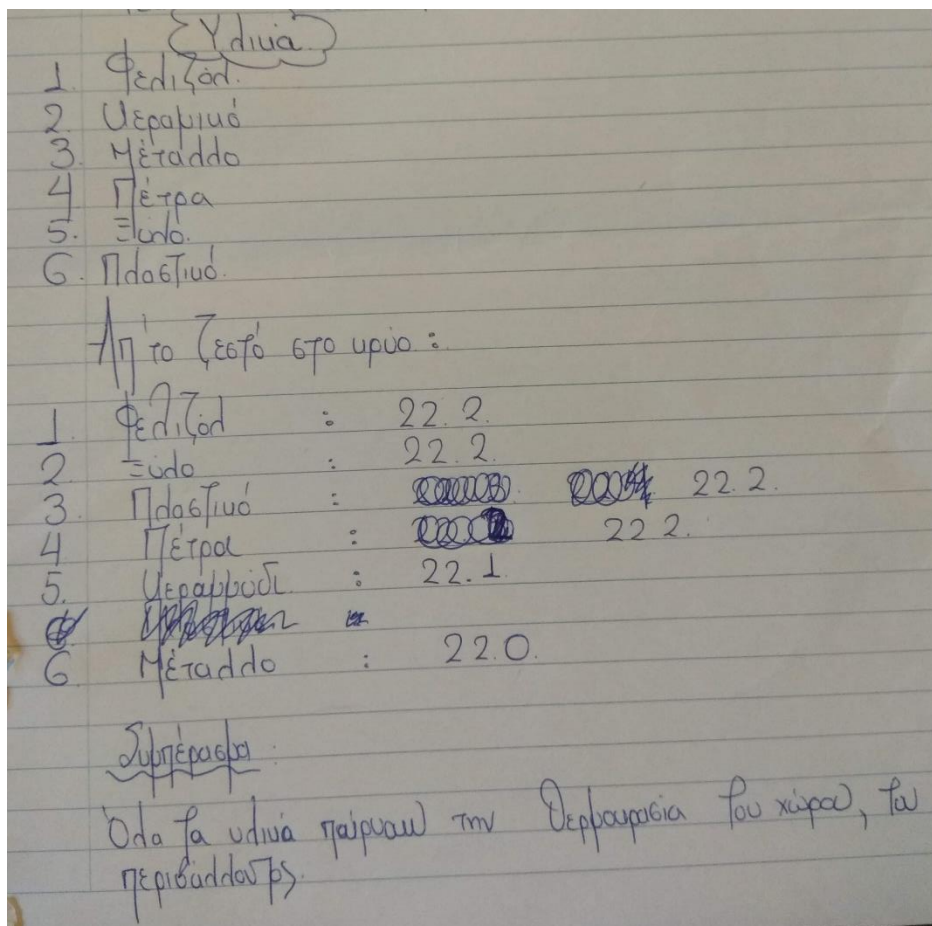 Υλικά
1. Φελιζόλ.
2. Κεραμικό
3. Μέταλλο
4 Πέτρα
5. Ξύλο.
6. Πλαστικό.
Απ'το ζεστό στο κρύο :
1. Φελιζόλ : 22.2.
2. Ξύλο : 22.2.
3. Πλαστικό : 22.2.
4 Πέτρα : 22.2.
5. Κεραμμύδι : 22.1
6 Μέταλλο : 22.0.
Συμπέρασμα.
Όλα τα υλικά παίρνουν την θερμοκρασία του χώρου, του
περιβάλλοντος.